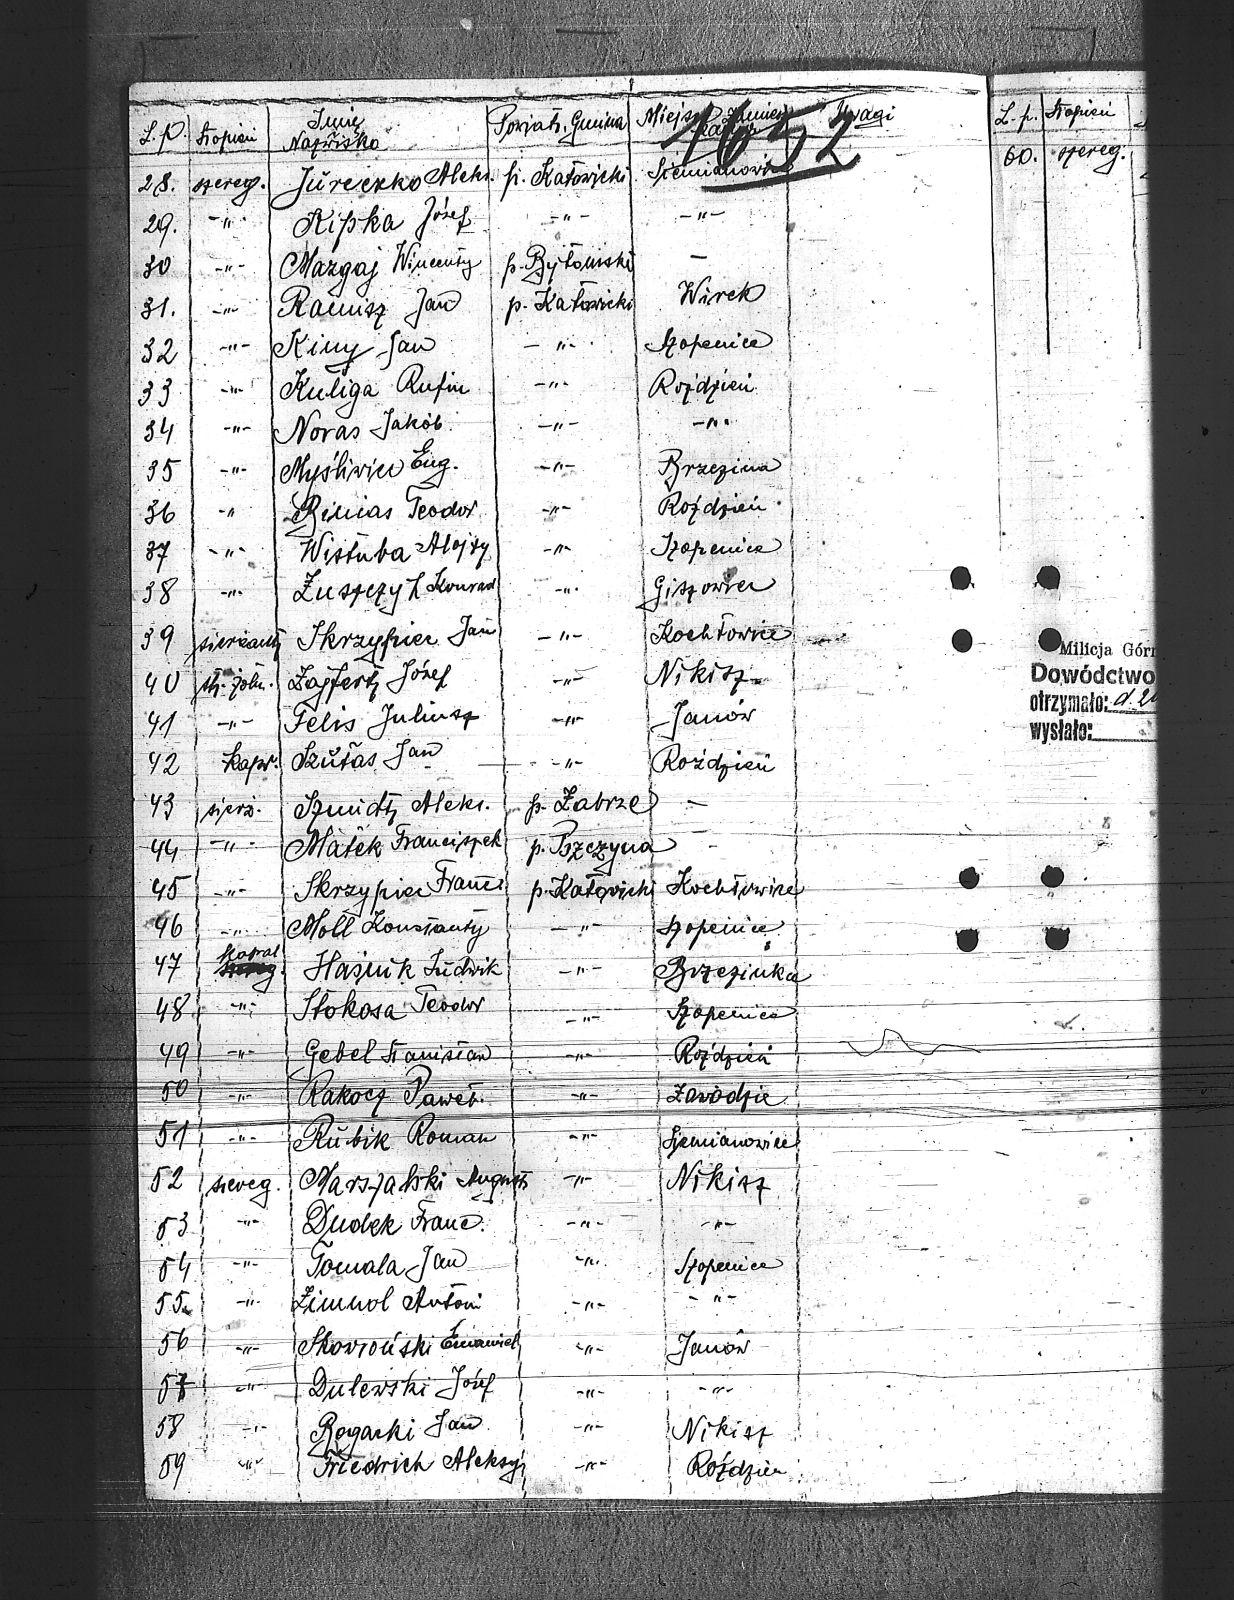 L.p. Stopień Imię Nazwisko Powiat. Gmina Miejsc. Uwagi
1652
28. szereg. Jureczko Aleks. p. Katowicki Siemianowice
29. -"- Kipka Józef -"- -"-
30 -"- Mazgaj Wincenty p. Bytomski —
31. -"- Ramisz Jan p. Katowicki Wirek
32 -"- Kiny Jan -"- Szopenice
33 -"- Kuliga Rufin -"- Roździeń
34 -"- Noras Jakób -"- -"-
35 -"- Myśliwiec Eug. -"- Brzezina
36 -" Bimias Teodor -"- Roździeń
37 -"- Wistuba Alojzy -"- Szopenice
38 -"- Zuszczyk Konrad -"- Giszowiec
39 sierżant Skrzypiec Jan -"- Kochłowice
40 st. żołn. Zajfertz Józef -"- Nikisz
41 -"- Felis Juliusz -"- Janów
42 kapr. Szułas Jan -"- Roździeń
43 sierż. Szmidtz Aleks. p. Zabrze —
44 -"- Małek Franciszek p. Pszczyna -
45 -"- Skrzypiec Franc. p. Katowicki Kochłowice
46 -"- Moll Konstanty -"- Szopenice
47 Kapral Haśnik Ludwik -"- Brzezinka
48 -"- Stokosa Teodor -"- Szopenice
49 -"- Gebel Stanisław -"- Roździeń
50 -"- Rakocz Paweł -"- Zawodzie
51 -"- Rubik Roman -"- Siemianowice
52 szereg. Marszalski August -"- Nikisz
53 -"- Dudek Franc. -"- -"-
54 -"- Tomala Jan -"- Szopenice
55. -"- Zimnol Antoni -"- -"-
56 -"- Skowroński Emanuel -"- Janów
57 -"- Dulewski Józef -"- -"-
58 -"- Bogacki Jan -"- Nikisz
59 -"- Friedrich Aleksy -"- Roździeń
L.p. Stopień
60. szereg.
Milicja Górn
Dowództwo
otrzymało: d.
wysłało: